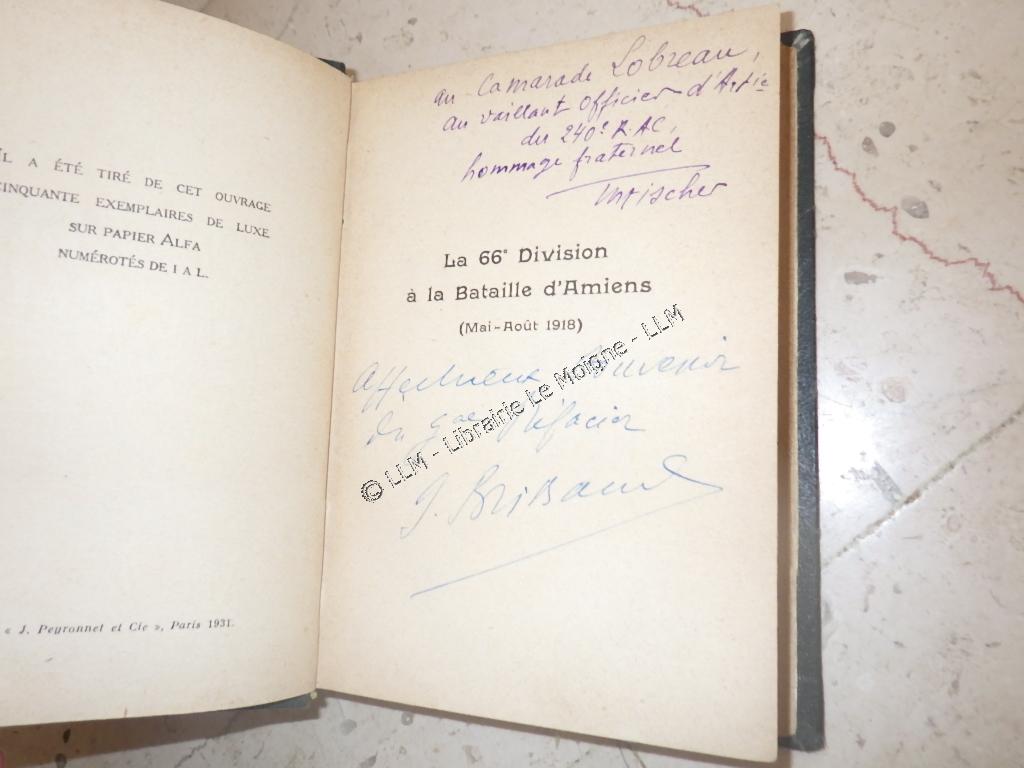 IL A ÉTÉ TIRÉ DE CET OUVRAGE
CINQUANTE EXEMPLAIRES DE LUXE
SUR PAPIER ALFA
NUMÉROTÉS DE I A L.
« J. Peyronnet et Cie », Paris 1931.
au Camarade Lobreau,
au vaillant officier d'Artie
du 240e R.A.C,
hommage fraternel
La 66e Division
à la Bataille d'Amiens
(Mai-Août 1918)
Affectueux Souvenir
du gal Préfacier
© LLM - Librairie Le Moigne - LLM